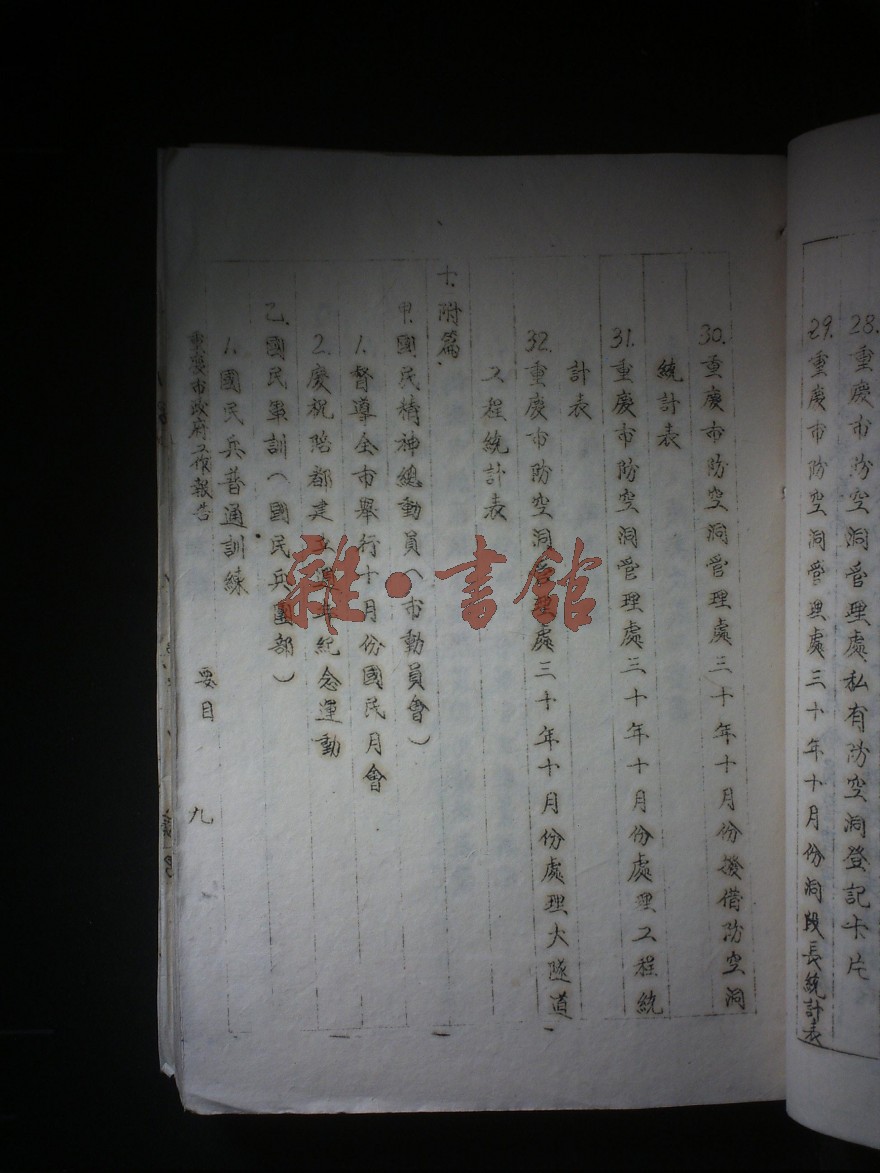 28.重慶市防空洞管理處私有防空洞登記卡片
29.重慶市防空洞管理處三十年十月份洞段長統計表
30.重慶市防空洞管理處三十年十月份撥借防空洞
統計表
31.重慶市防空洞管理處三十年十月份處理工程統
計表
32.重慶市防空洞管理處三十年十月份處理大隧道
工程統計表
十.附篇
甲.國民精神總動員(市動員會)
1.督導全市舉行十月份國民月會
2.慶祝陪都建立週年紀念運動
乙.國民軍訓(國民兵團部)
1.國民兵普通訓練
重慶市政府工作報告 要目 九
雜·書館